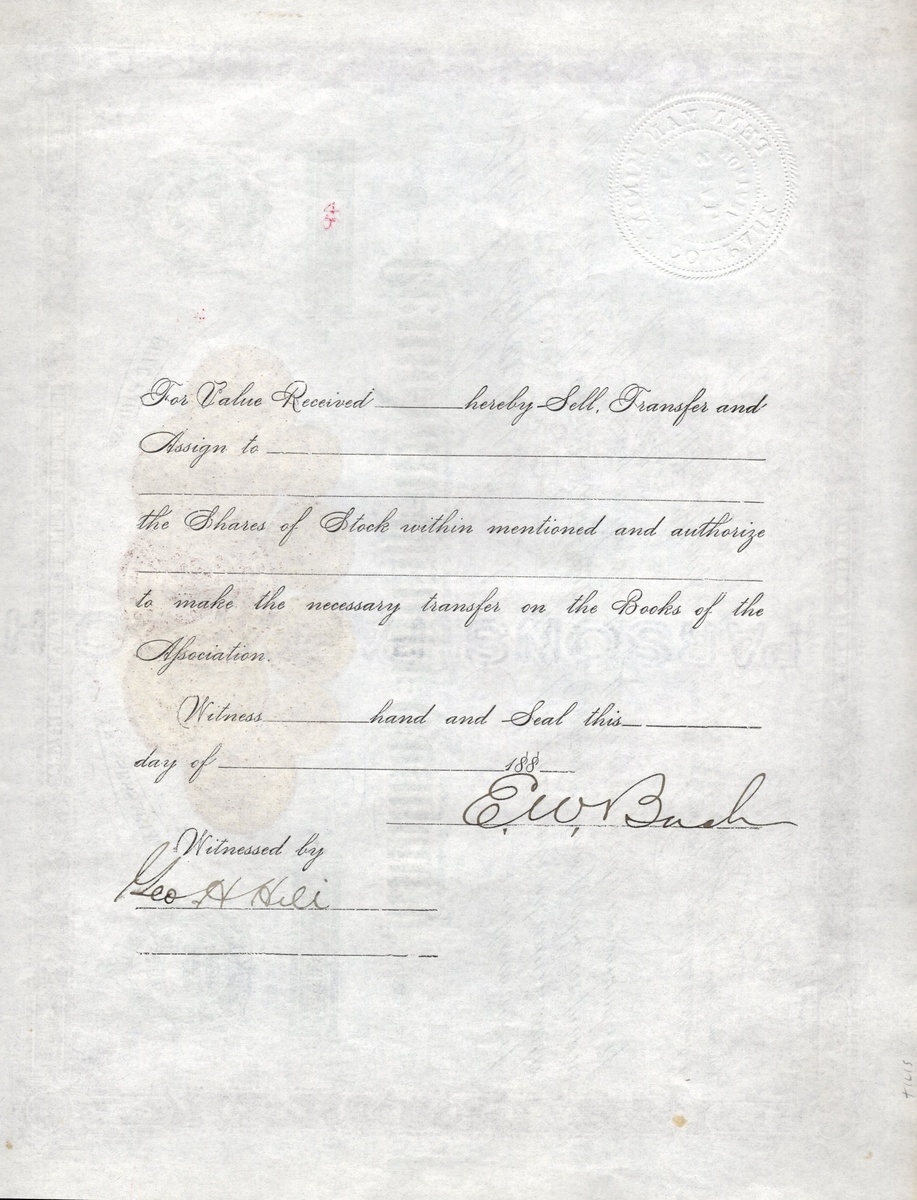 For Value Received hereby Sell, Transfer and
Assign to
the Shares of Stock within mentioned and authorize
to make the necessary transfer on the Books of the
Association.
Witness hand and Seal this
day of 188
E. W. Bush
Witnessed by
Geo H Hill